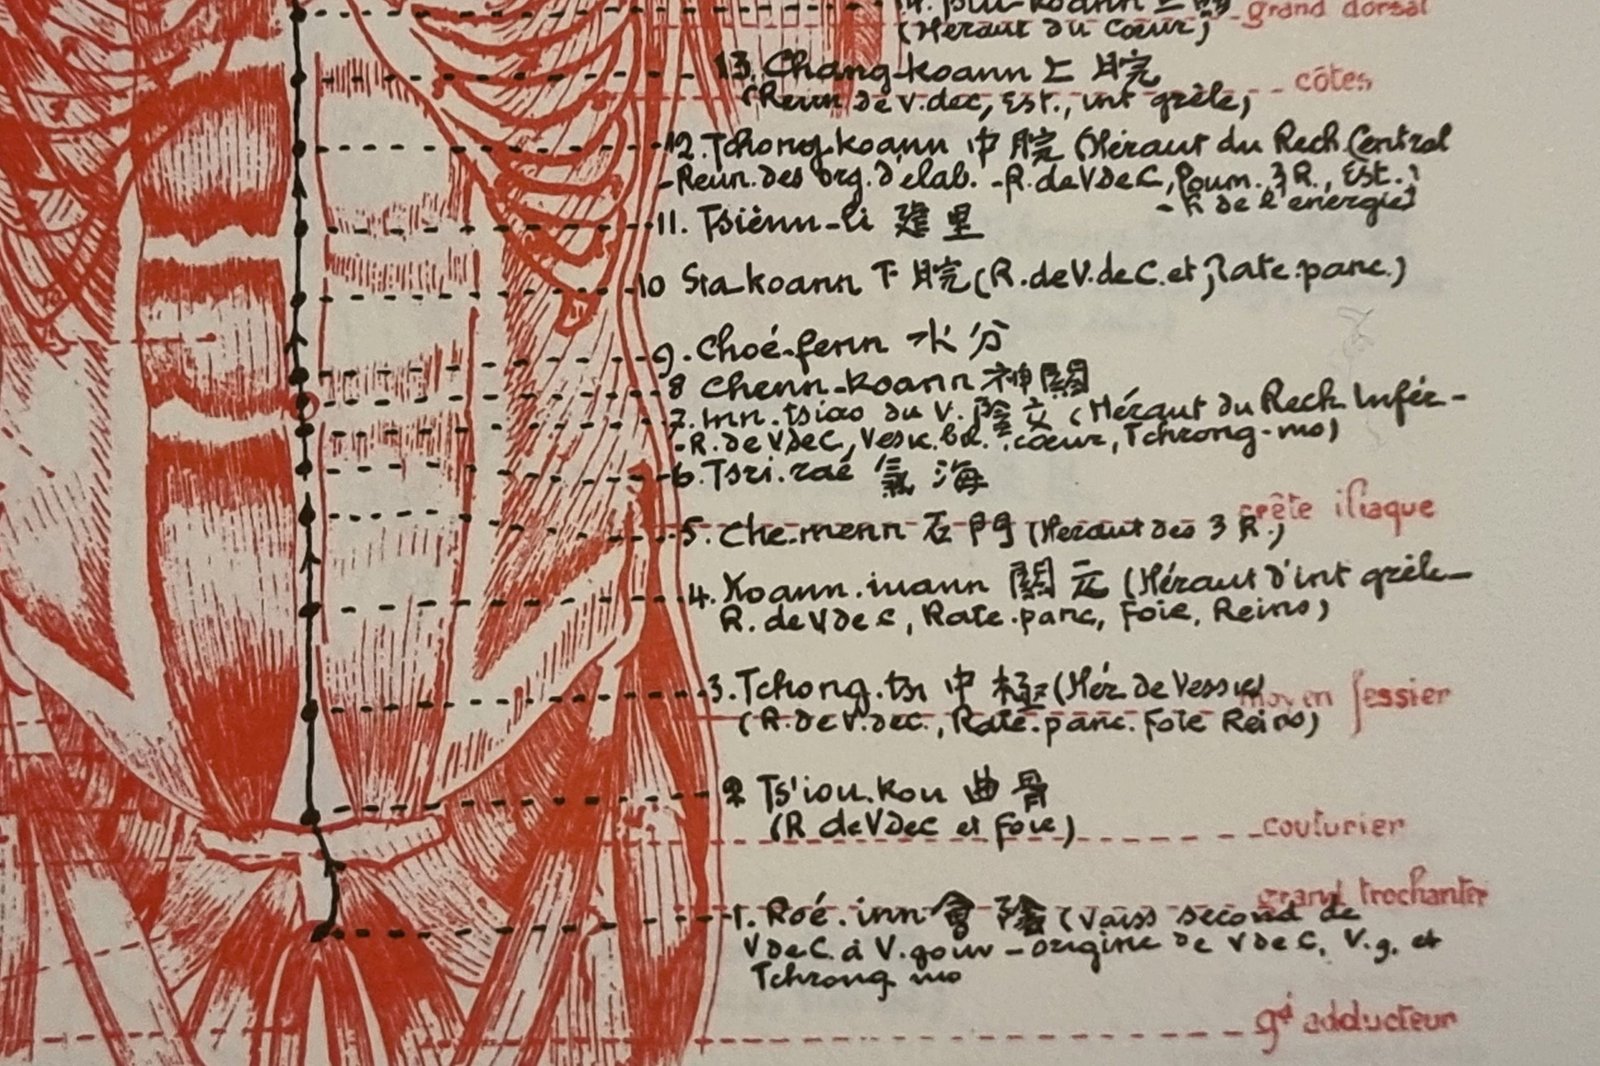 grand dorsal
(Héraut du Cœur)
13. Chang-koann 上脘
côtes
(Reun de V.dec, Est., int grêle)
12. Tchong-koann 中脘 (Héraut du Rech Central
-Reun. des org. d'élab. -R. de VdeC, Poum. 3 R., Est.,
- R de l'énergie)
11. Tsiènn-li 建里
10 Sia-koann 下脘 (R. de V. de C. et Rate.panc.)
9. Choé-fenn 水分
8 Chenn-koann 神闕
7. Inn.tsiao du V. 陰交 (Héraut du Rech Infér-
-R. de VdeC, Vesic. bil. cœur, Tchrong-mo)
6. Tsri.raé 氣海
crête iliaque
5. Che.menn 石門 (Heraut des 3 R.)
4. Koann.iuann 關元 (Héraut d'int grêle-
R. de VdeC, Rate.panc, Foie, Reins)
3. Tchong.tsi 中極 (Hér de Vessie)
moyen fessier
(R. de V.dec., Rate.panc. Foie Reins)
2 Ts'iou.kou 曲骨
(R de VdeC et Foie)
couturier
grand trochanter
1. Roé.inn 會陰 (Vaiss second de
VdeC. à V.gouv - origine de VdeC, V.g. et
Tchrong mo
gd adducteur